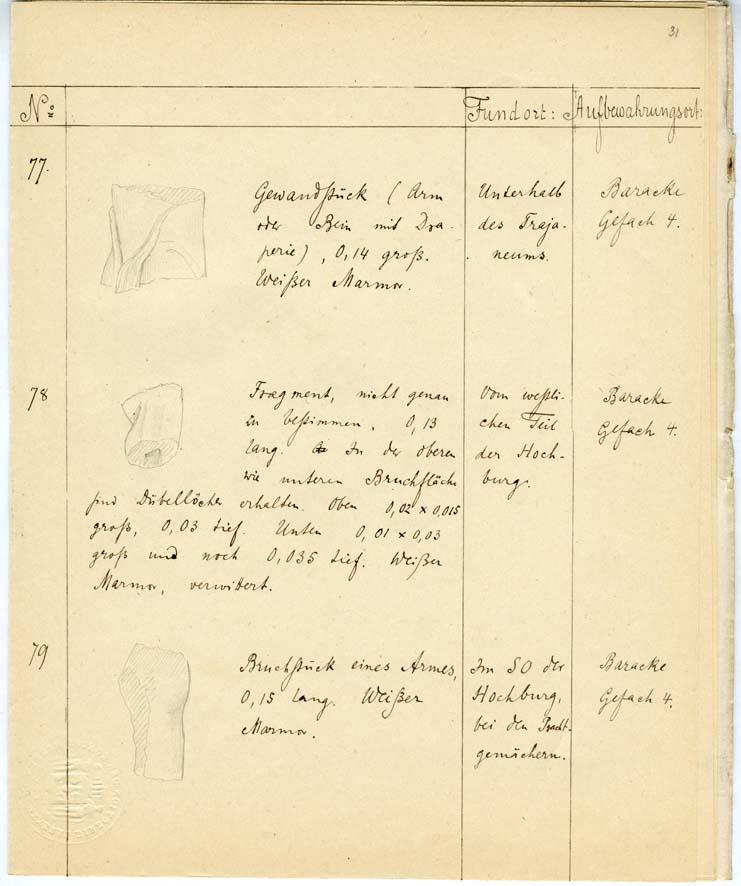 31
No: Fundort: Aufbewahrungsort:
77.
Gewandstück (Arm
oder Bein mit Dra-
perie), 0,14 groß.
Weißer Marmor.
Unterhalb
des Traja-
neums.
Baracke
Gefach 4.
78
Fragment, nicht genau
zu bestimmen. 0,13
lang. In der oberen
wie unteren Bruchfläche
sind Dübellöcher erhalten. Oben 0,02 × 0,015
groß, 0,03 tief. Unten 0,01 × 0,03
groß und noch 0,035 tief. Weißer
Marmor, verwittert.
Vom westli-
chen Teil
der Hoch-
burg.
Baracke
Gefach 4.
79
Bruchstück eines Armes,
0,15 lang. Weißer
Marmor.
Im SO der
Hochburg,
bei den Pracht-
gemächern.
Baracke
Gefach 4.